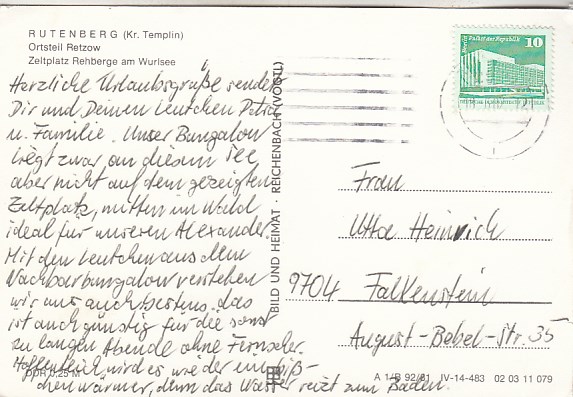 RUTENBERG (Kr. Templin)
Ortsteil Retzow
Zeltplatz Rehberge am Wurlsee
Herzliche Urlaubsgrüße senden
Dir und Deinen Leutchen Petra
u. Familie. Unser Bungalow
liegt zwar an diesem See,
aber nicht auf dem gezeigten
Zeltplatz, mitten im Wald
ideal für unseren Alexander.
Mit den Leutchen aus dem
Nachbarbungalow verstehen
wir uns auch bestens, das
ist auch günstig für die sonst
zu langen Abende ohne Fernseher.
Hoffentlich wird es wieder ein biß-
chen wärmer, denn das Wasser reizt zum Baden.
BILD UND HEIMAT · REICHENBACH (VOGTL)
10
Palast der Republik
Berlin
DEUTSCHE DEMOKRATISCHE REPUBLIK
Frau
Utta Heinrich
9704 Falkenstein
August-Bebel-Str. 35
DDR 0,25 M
A 1/B 92/81 IV-14-483 02 03 11 079